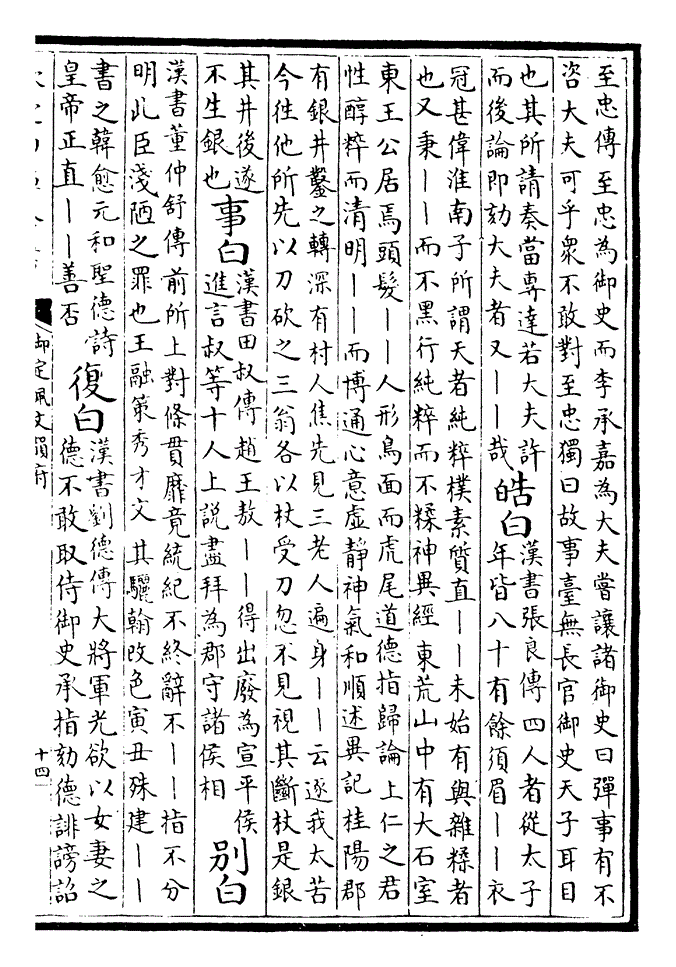 至忠傳至忠為御史而李承嘉為大夫嘗讓諸御史曰彈事有不
咨大夫可乎衆不敢對至忠獨曰故事臺無長官御史天子耳目
也其所請奏當專達若大夫許
而後論即劾大夫者又丨丨哉
皓白
漢書張良傳四人者從太子
年皆八十有餘須眉丨丨衣
冠甚偉淮南子所謂天者純粹樸素質直丨丨未始有與雜糅者
也又秉丨丨而不黑行純粹而不糅神異經東荒山中有大石室
東王公居焉頭髮丨丨人形鳥面而虎尾道德指歸論上仁之君
性醇粹而清明丨丨而博通心意虛靜神氣和順述異記桂陽郡
有銀井鑿之轉深有村人焦先見三老人遍身丨丨云逐我太苦
今徃他所先以刀砍之三翁各以杖受刀忽不見視其斷杖是銀
其井後遂
不生銀也
事白
漢書田叔傳趙王敖丨丨得出廢為宣平侯
進言叔等十人上説盡拜為郡守諸侯相
別白
漢書董仲舒傳前所上對條貫靡竟統紀不終辭不丨丨指不分
明此臣淺陋之罪也王融策秀才文其驪翰改色寅丑殊建丨丨
書之韓愈元和聖德詩
皇帝正直丨丨善否
復白
漢書劉德傳大將軍光欲以女妻之
德不敢取侍御史承指劾德誹謗詔
御定佩文韻府
十四